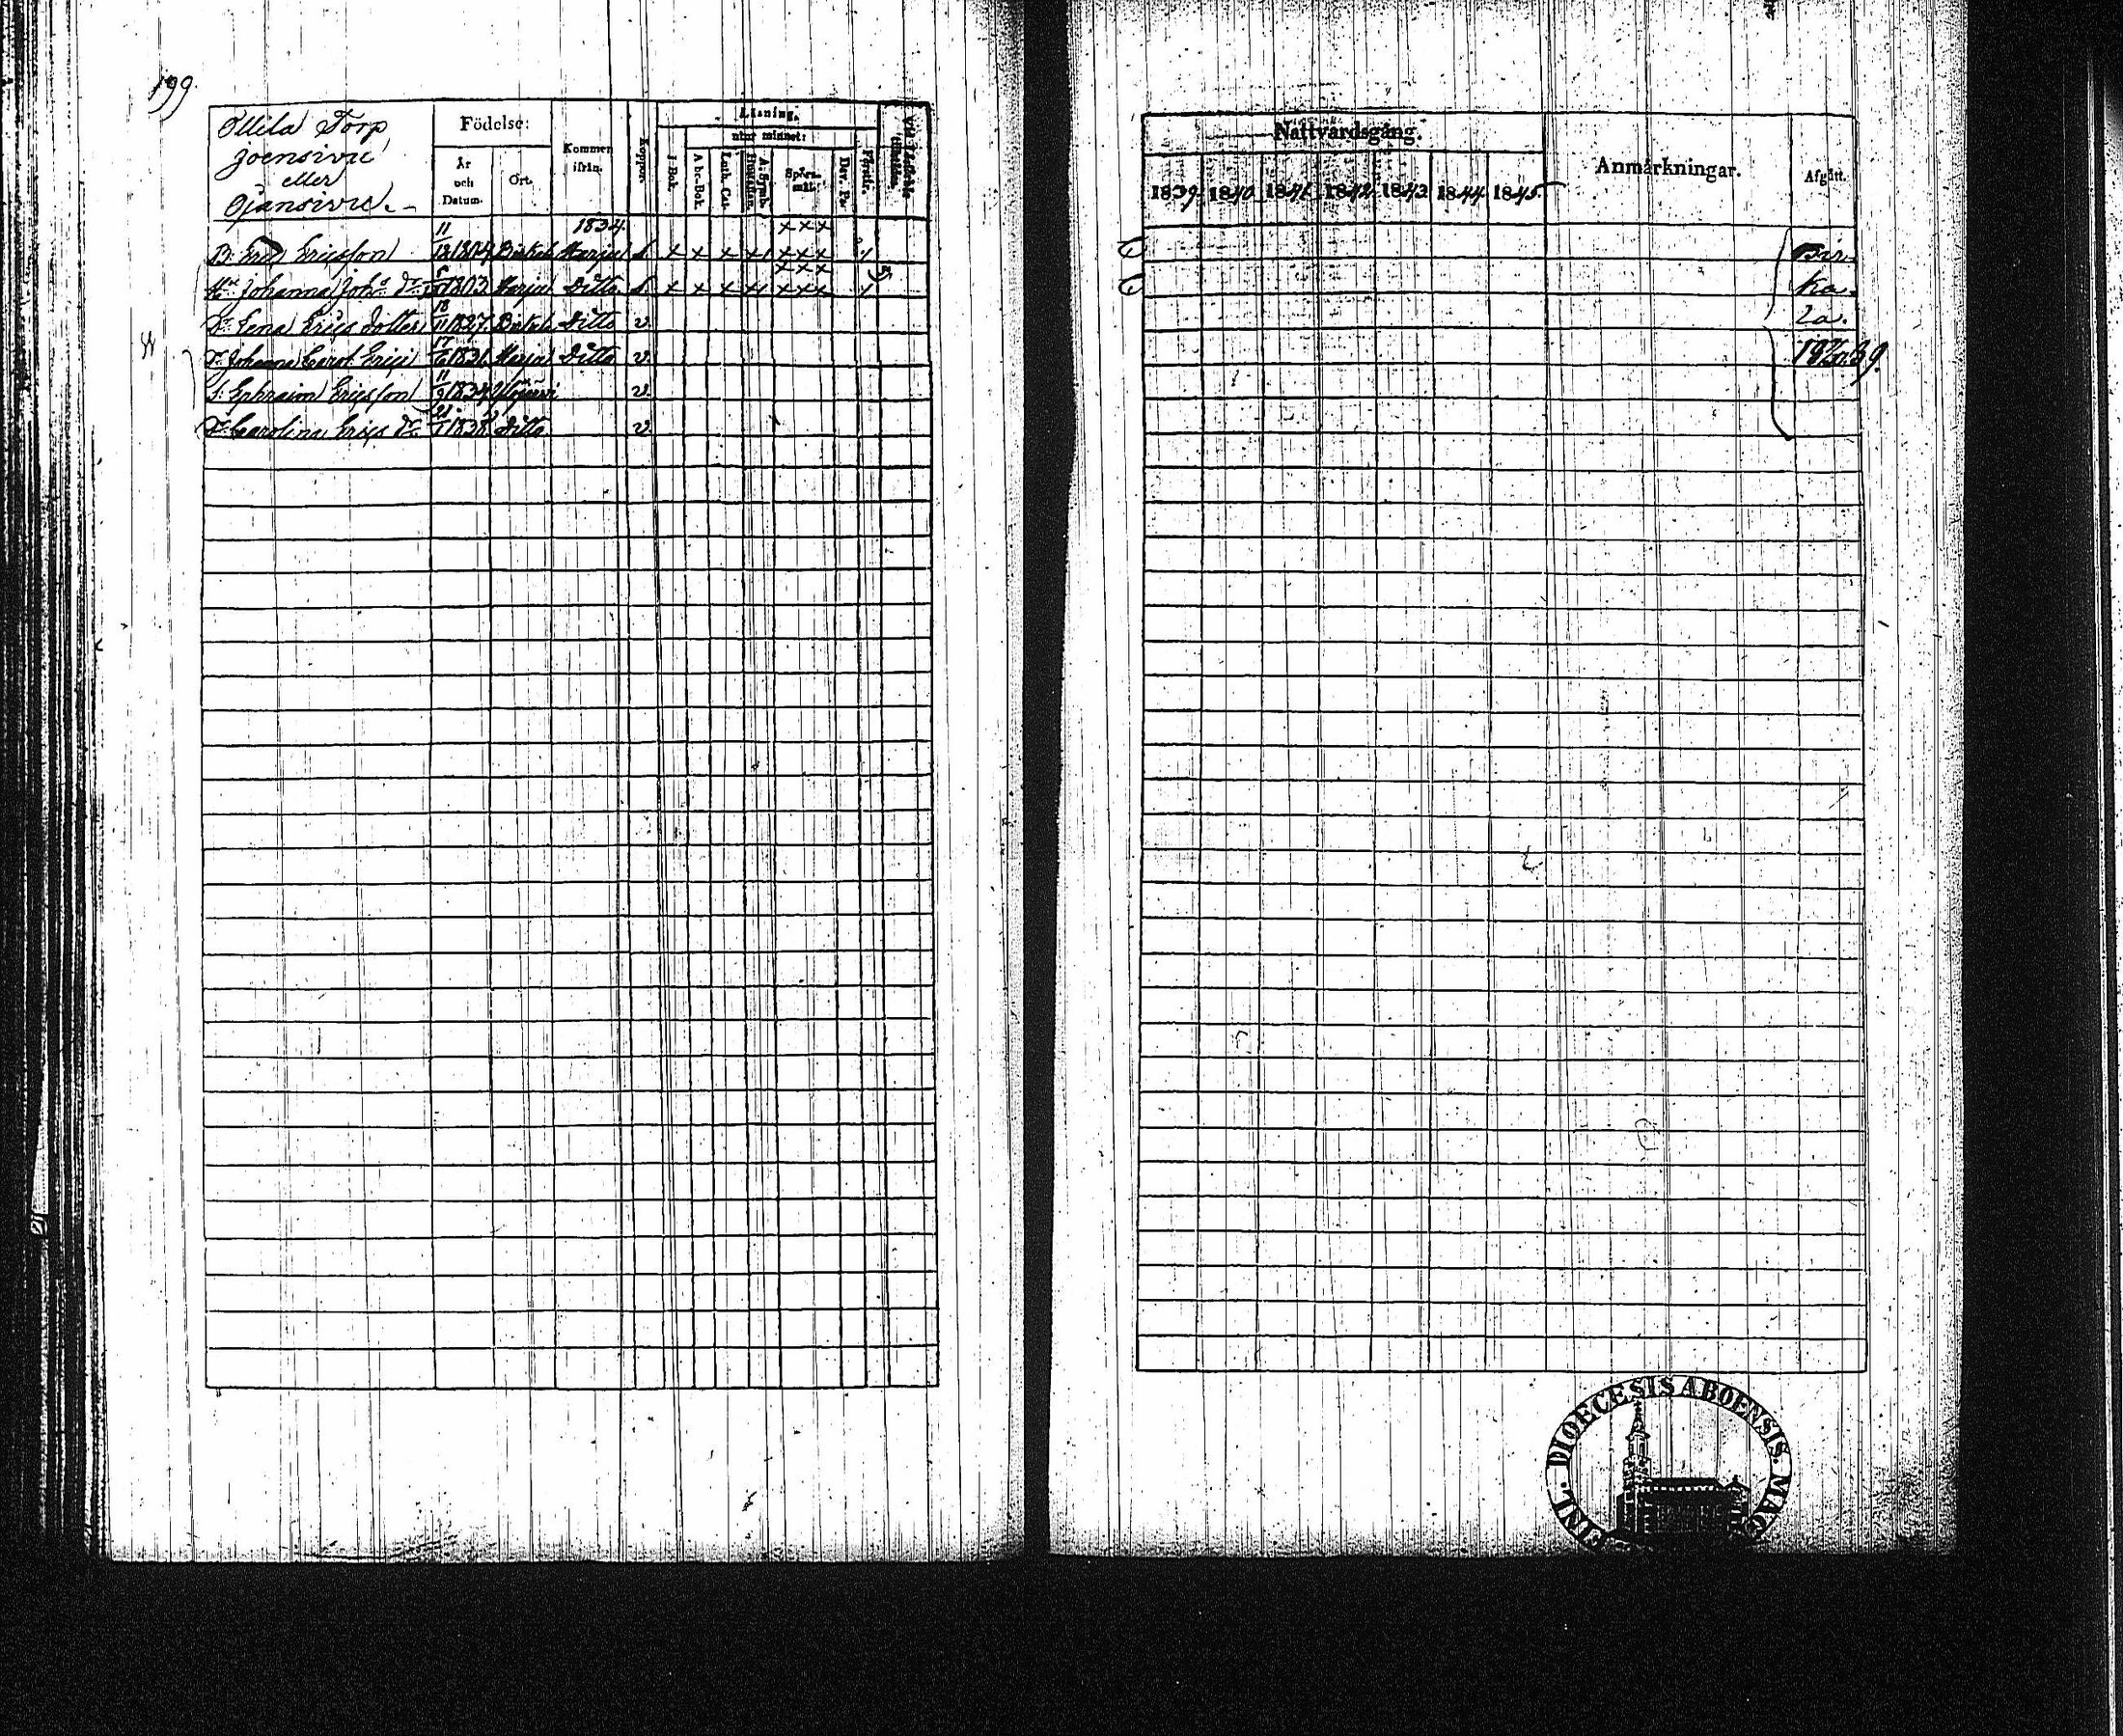 199.
Ollila Torp
Joensivu
eller
Ojansivu.
Födelse:
År
och
Datum.
Ort.
Kommen
ifrån.
Koppor.
Läsning.
utur minnet:
I Bok.
Abc-Bok.
Luth. Cat.
A. Symb.
Spörs-
mål.
Dav. Ps.
Förstår.
1834.
B. Eric Ericsson 11/12 1804 Birkala Harju
Johanna Joh:s d:r 1803 Harju Ditto
D. Lena Erics dotter 18/11 1827 Birkala Ditto v.
D. Johanna Carol. Erici 17 1831 Harju Ditto v.
S. Ephraim Ericsson 11/9 1834 Ylöjervi v.
D. Carolina Erics d:r 21/1 1838 Ditto v.
Nattvardsgång.
1839. 1840 1841 1842 1843 1844 1845.
Anmärkningar.
Afgått.
Bir-
ka-
la.
39.
FINL. DIOECESIS ABOENSIS. MAG